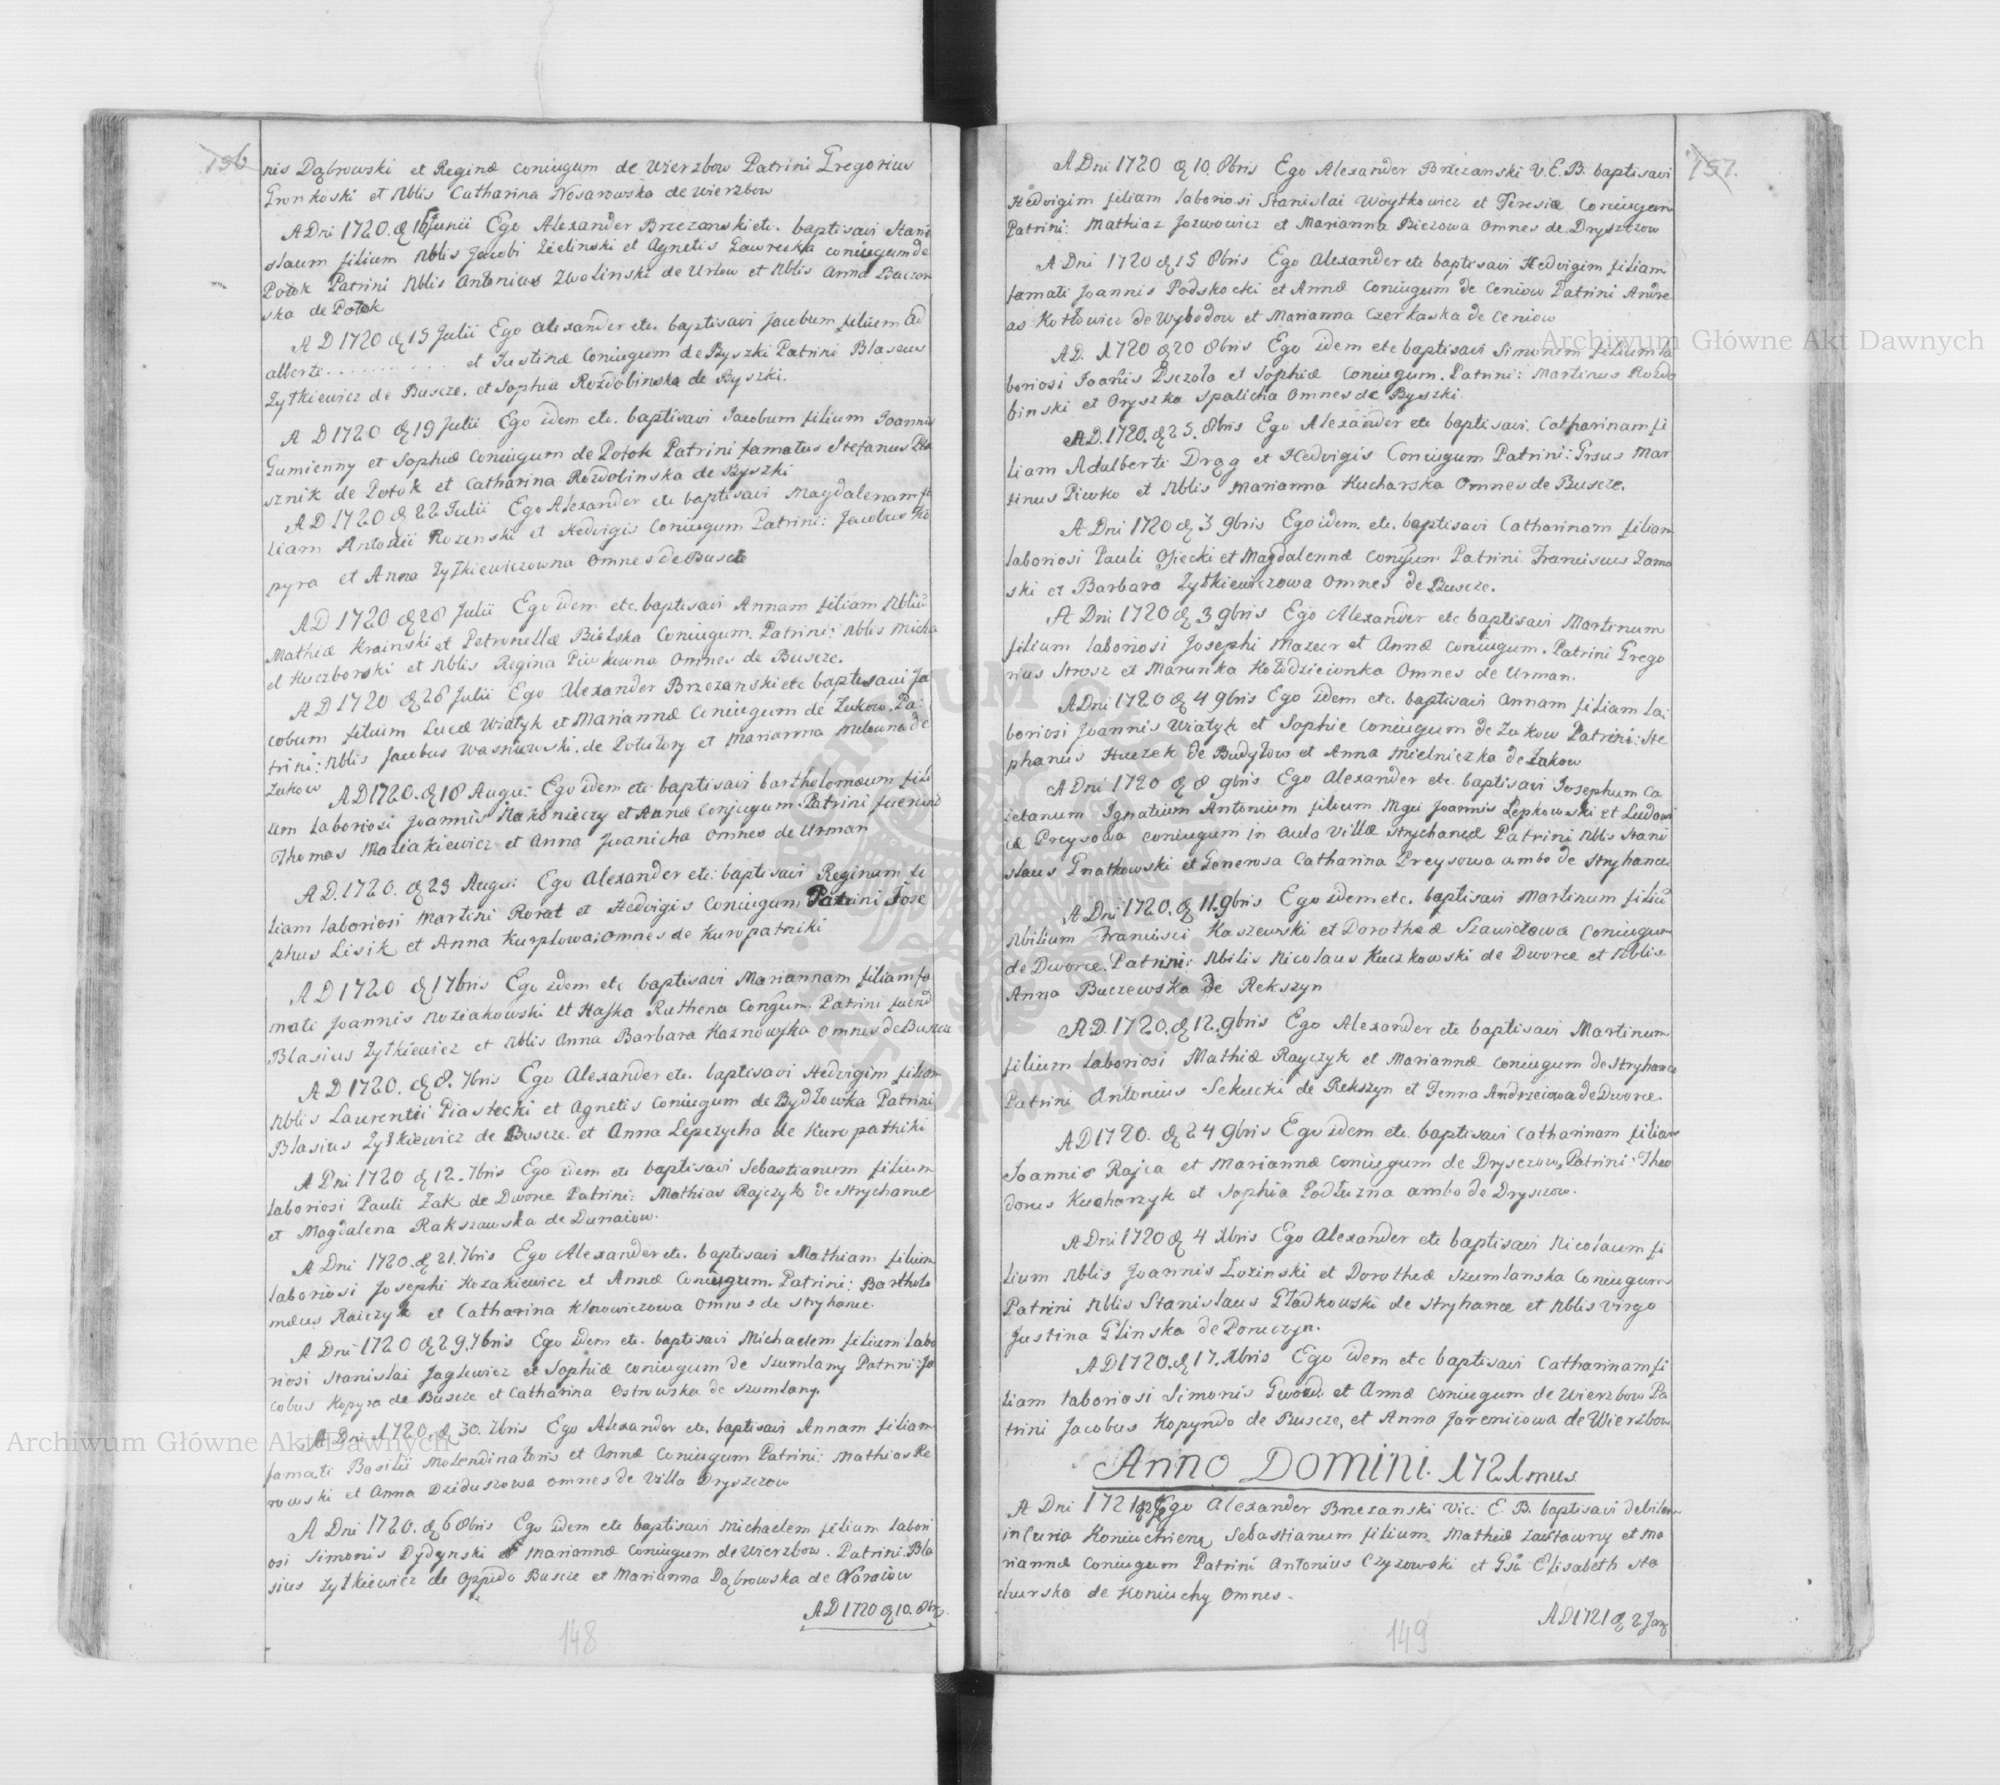 156
nis Dąbrowski et Reginæ coniugum de Wierzbow Patrini Gregorius
Gronkoski et Nblis Catharina Nosarowska de Wierzbow
A Dni 1720. d 16 Junii Ego Alexander Brzezanski etc. baptisavi Stani
slaum filium Nblis Jacobi Zielinski et Agnetis Lawrecka coniugum de
Potok Patrini Nblis Antonius Zwolinski de Urlow et Nblis Anna Buczow
ska de Potok
A D 1720 d 15 Julii Ego Alexander etc. baptisavi Jacobum filium Ad
alberti . . . . . . . . . . et Justinæ Coniugum de Byszki Patrini Blasius
Zytkiewicz de Buscze, et Sophia Rozdobinska de Byszki.
A D 1720 d 19 Julii Ego idem etc. baptisavi Jacobum filium Joannis
Gumienny et Sophiæ Coniugum de Potok Patrini famatus Stefanus
sznik de Potok et Catharina Rozdolinska de Byszki
A D 1720 d 22 Julii Ego Alexander etc baptisavi Magdalenam fi
liam Antonii Rozenski et Hedvigis Coniugum Patrini: Jacobus Ko
pyra et Anna Zytkiewiczowna omnes de Buscze
A D 1720 d 28 Julii Ego idem etc. baptisavi Annam filiam Nbliū
Mathiæ Krainski et Petronellæ Bielska Coniugum. Patrini: Nblis Micha
el Kuczborski et Nblis Regina Piwkowna Omnes de Buscze.
A D 1720 d 28 Julii Ego Alexander Brzezanski etc baptisavi Ja
cobum filium Lucæ Wiatyk et Mariannæ Coniugum de Zukow. Pa:
trini: Nblis Jacobus Wasniewski. de Potutory et Marianna Melowna de
Zukow
A D 1720. d 18 Augu: Ego idem etc baptisavi bartholomæum fili
um laboriosi Joannis Nakonieczy et Annæ Conjugum. Patrini fuerunt
Thomas Maziakiewicz et Anna Jwanicha Omnes de Urman
A D. 1720. d 23 Augu: Ego Alexander etc: baptisavi Reginam fi
liam laboriosi Martini Rorat et Hedvigis Coniugum Patrini Jose
phus Lisik et Anna Kurplowa: omnes de Kuropatniki
A D 1720 d 1 7bris Ego idem etc baptisavi Mariannam filiam fa
mati Joannis Noziakowski et Haska Ruthena Congum. Patrini fuerūt
Blasius Zytkiewicz et Nblis Anna Barbara Kaznowska omnes de Buscze
A D 1720. d 8. 7bris Ego Alexander etc. baptisavi Hedvigim filiam
Nblis Laurentii Piastecki et Agnetis Coniugum de Bydłowka Patrini
Blasius Zytkiewicz de Buscze. et Anna Lepczycha de Kuropatniki
A Dni 1720 d 12. 7bris Ego idem etc baptisavi Sebastianum filium
laboriosi Pauli Zak de Dworce Patrini: Mathias Rajczyk de Strychance
et Magdalena Rakszawska de Dunaiow.
A Dni 1720. d 21. 7bris Ego Alexander etc. baptisavi Mathiam filium
laboriosi Josephi Kozakiewicz et Annæ Coniugum. Patrini: Bartholo
mæus Raiczyk et Catharina Klnowiczowa omnes de Stryhance.
A Dni 1720 d 29. 7bris Ego idem etc. baptisavi Michaelem filium labo
riosi Stanislai Jaglewicz et Sophiæ Coniugum de Szumlany Patrini: Ja
cobus Kopyra de Buscze et Catharina Ostrowska de Szumlany.
A Dni 1720. d 30. 7bris Ego Alexander etc. baptisavi Annam filiam
famati Basilii Molendinatoris et Annæ Coniugum Patrini: Mathias Re
rowski et Anna Dziduszowa omnes de Villa Dryszczow
A Dni 1720. d 6 8bris Ego idem etc baptisavi Michaelem filium labori
osi Simonis Dydynski et Mariannæ Coniugum de Wierzbow. Patrini. Bla
sius Zytkiewicz de Oppido Buscze et Marianna Dąbrowska de Naraiow
A D 1720 d 10. 8br.
148
157.
A Dni 1720 d 10. 8bris Ego Alexander Brzezanski V. E. B. baptisavi
Hedvigim filiam laboriosi Stanislai Woytkowicz et Teresiæ Coniugum
Patrini: Mathiaz Jozwowicz et Marianna Biczowa omnes de Dryszczow
A Dni 1720 d 15 8bris Ego Alexander etc baptisavi Hedvigim filiam
famati Joannis Podskocki et Annæ Coniugum de Ceniow Patrini Andre
as Kotłowicz de Wybodow et Marianna Czerkaska de Ceniow
A D. 1720 d 20 8bris Ego idem etc baptisavi Simonem filium la
boriosi Joañis Psczoła et Sophiæ Coniugum. Patrini: Martinus Rozdo
binski et Oryszka Spalicha Omnes de Byszki.
A D. 1720. d 25. 8bris Ego Alexander etc baptisavi. Catharinam fi
liam Adalberti Drąg et Hedvigis Coniugum Patrini: Grsus Mar
tinus Piwko et Nblis Marianna Kucharska Omnes de Buscze.
A Dni 1720 d 3 9bris Ego idem. etc. baptisavi Catharinam filiam
laboriosi Pauli Osiecki et Magdalennæ Congum Patrini Franciscus Zamo
ski et Barbara Zytkiewiczowa Omnes de Buscze.
A Dni 1720 d 3 9bris Ego Alexander etc baptisavi Martinum
filium laboriosi Josephi Mazur et Annæ Coniugum. Patrini Grego
rius Strosz et Marunka Kołodzieionka Omnes de Urman.
A Dni 1720 d 4 9bris Ego idem etc. baptisavi Annam filiam la:
boriosi Joannis Wiatyk et Sophiæ Coniugum de Zukow Patrini: Ste
phanus Huzek de Budyłow et Anna Mielniczka de Zukow
A Dni 1720 d 8 9bris Ego Alexander etc. baptisavi Josephum Ca
ietanum Ignatium Antonium filium Mgci Joannis Lepkowski et Ludovi
cæ Preysowa Coniugum in aula Villæ Strychance Patrini Nblis Stani
slaus Gnatkowski et Generosa Catharina Preysowa ambo de Stryhance
A Dni 1720. d 11. 9bris Ego idem etc. baptisavi Martinum filiū
Nbilium Francisci Kaszewski et Dorotheæ Szawiłowa Coniugum
de Dworce. Patrini: Nbilis Nicolaus Kuczkowski de Dworce et Nblis
Anna Buczewska de Rekszyn
A D. 1720. d 12. 9bris Ego Alexander etc baptisavi Martinum
filium laboriosi Mathiæ Rayczyk et Mariannæ Coniugum de Stryhance
Patrini Antonius Sekucki de Rekszyn et Jenna Andrzeiowa de Dworce.
A D 1720. d 24 9bris Ego idem etc. baptisavi Catharinam filiam
Joannis Rajca et Mariannæ Coniugum de Dryszow, Patrini: Theo
dorus Kucharzyk et Sophia Podłuzna ambo de Dryszow.
A Dni 1720 d 4 Xbris Ego Alexander etc baptisavi Nicolaum fi
lium Nblis Joannis Lozinski et Dorotheæ Szumlanska Coniugum
Patrini Nblis Stanislaus Gładkowski de Stryhance et Nblis Virgo
Justina Glinska de Poruczyn.
A D 1720. d 17. Xbris Ego idem etc baptisavi Catharinam fi
liam laboriosi Simonis et Annæ Coniugum de Wierzbow Pa
trini Jacobus Kopyndo de Buscze, et Anna Jaremicowa de Wierzbow
Anno Domini. 1721mus
A Dni 1721 Ego Alexander Brzezanski Vic: E. B. baptisavi debilem
in Curia Koniuchiensi Sebastianum filium Mathiæ Zawławny et Ma
riannæ Coniugum Patrini Antonius Czyzowski et Gsa Elisabeth Sta
churska de Koniuchy Omnes.
A D 1721 d 2 Jan
149
Archiwum Główne Akt Dawnych
Archiwum Główne Akt Dawnych